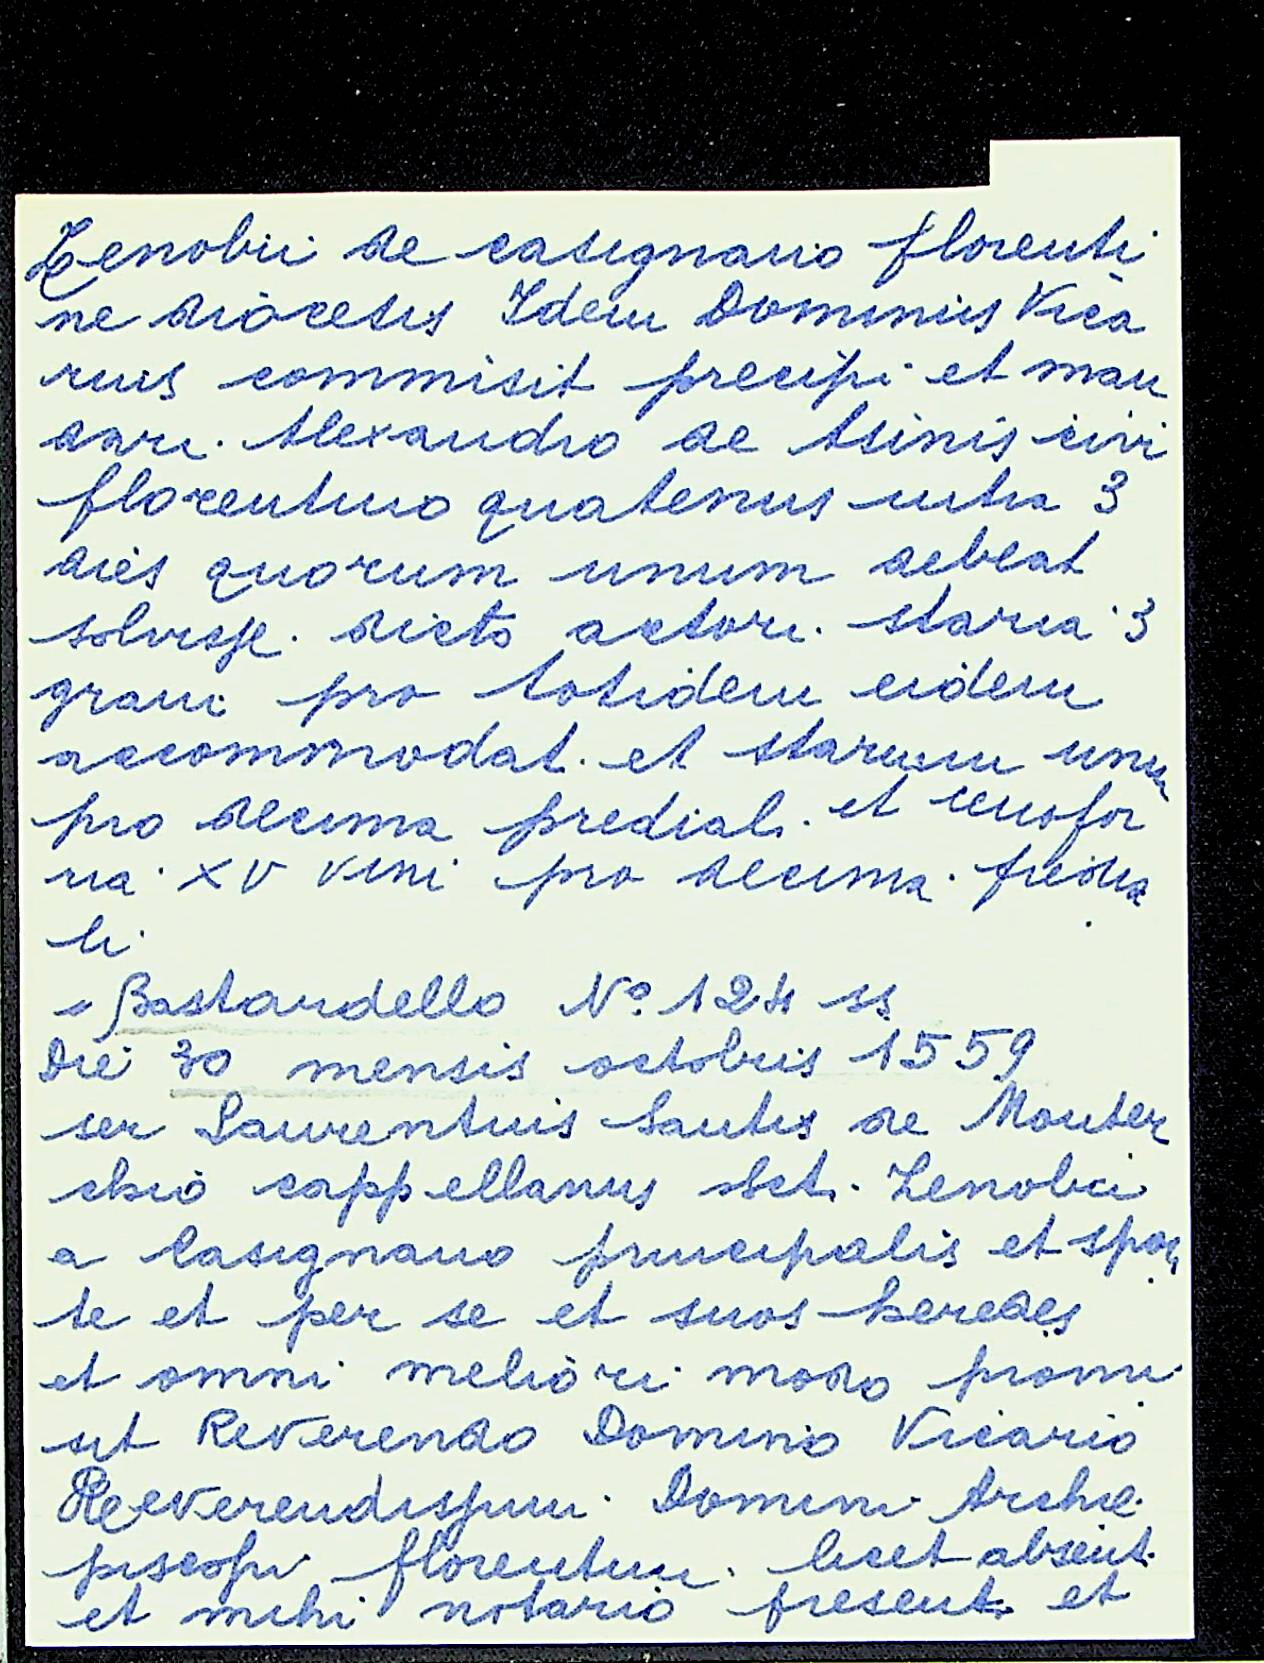 Zenobii de casignano florenti
ne diocesis Idem Dominus Vica
rius commisit precipi et man
dari. Alexandro de Asinis civi
florentino quatenus intra 3
dies quorum unum debeat
solvisse. dicto actori. staria 3
grani pro totidem eidem
accommodat. et starium unum
pro decima predial. et
ria XV vini pro decima. predia
li.
Bastardello Nº 124 ss
Die 30 mensis octobris 1559
ser Laurentius Santis de Monter
chio cappellanus sct. Zenobii
a Casignano principalis et spon
te et per se et suos heredes
et omni meliori modo promi
sit Reverendo Domino Vicario
Reverendissimi. Domini Archie
piscopi florentini. licet absent.
et mihi notario present. et